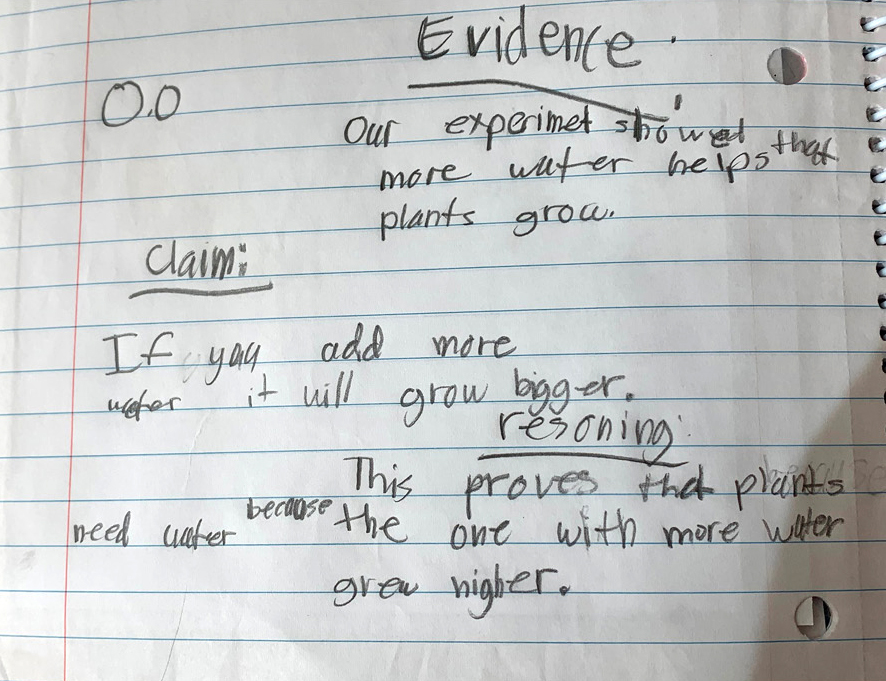 Evidence.
O.O
Our experimet showed that
more water helps
plants grow.
Claim:
If you add more
water it will grow bigger.
resoning:
This proves that plants
need water because the one with more water
grew higher.